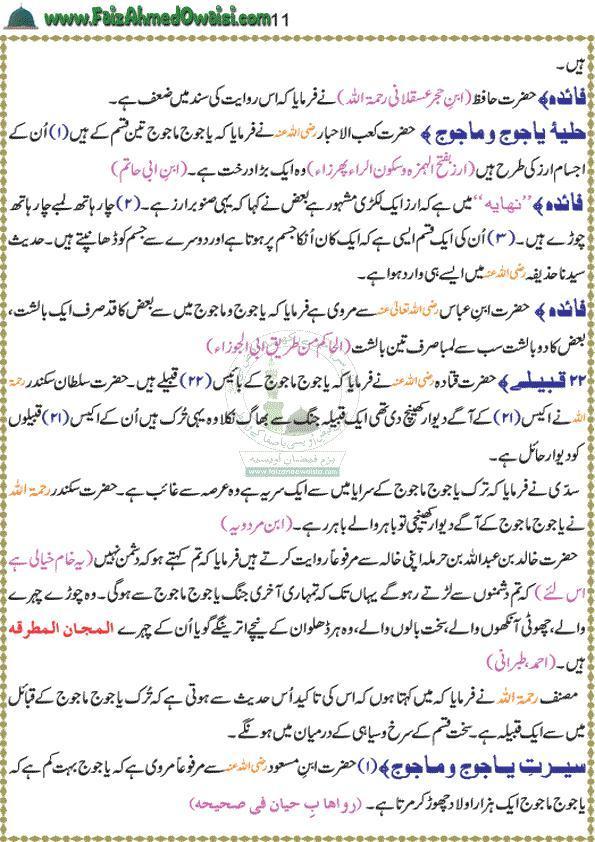 www.FaizAhmedOwaisi.com 11
ہیں۔
فائدہ﴾ حضرت حافظ (ابنِ حجر عسقلانی رحمۃ اللہ) نے فرمایا کہ اس روایت کی سند میں ضعف ہے۔
حلیۂ یاجوج و ماجوج﴾ حضرت کعب الاحبار رضی اللہ عنہ نے فرمایا کہ یاجوج ماجوج تین قسم کے ہیں (۱) اُن کے
اجسام ارز کی طرح ہیں (ارز بفتح الہمزہ و سکون الراء پھر زاء) وہ ایک بڑا درخت ہے۔ (ابنِ ابی حاتم)
فائدہ﴾ ”نھایہ“ میں ہے کہ ارز ایک لکڑی مشہور ہے بعض نے کہا کہ یہی صنوبر ارز ہے۔ (۲) چار ہاتھ لمبے چار ہاتھ
چوڑے ہیں۔ (۳) اُن کی ایک قسم ایسی ہے کہ ایک کان اُنکا جسم پر ہوتا ہے اور دوسرے سے جسم کو ڈھانپتے ہیں۔ حدیث
سیدنا حذیفہ رضی اللہ عنہ میں ایسے ہی وارد ہوا ہے۔
فائدہ﴾ حضرت ابنِ عباس رضی اللہ تعالیٰ عنہ سے مروی ہے فرمایا کہ یاجوج و ماجوج میں سے بعض کا قد صرف ایک بالشت،
بعض کا دو بالشت سب سے لمبا صرف تین بالشت (الحاکم من طریق ابی الجوزاء)
۲۲ قبیلے﴾ حضرت قتادہ رضی اللہ عنہ نے فرمایا کہ یاجوج ماجوج کے بائیس (۲۲) قبیلے ہیں۔ حضرت سلطان سکندر رحمۃ
اللہ نے اکیس (۲۱) کے آگے دیوار کھینچ دی تھی ایک قبیلہ جنگ سے بھاگ نکلا وہ یہی ترک ہیں اُن کے اکیس (۲۱) قبیلوں
کو دیوار حائل ہے۔
سدّی نے فرمایا کہ ترک یاجوج ماجوج کے سرایا میں سے ایک سریہ ہے وہ عرصہ سے غائب ہے۔ حضرت سکندر رحمۃ اللہ
نے یاجوج ماجوج کے آگے دیوار کھینچی تو باہر والے باہر رہے۔ (ابنِ مردویہ)
حضرت خالد بن عبداللہ بن حرملہ اپنی خالہ سے مرفوعاً روایت کرتے ہیں فرمایا کہ تم کہتے ہو کہ دشمن نہیں (یہ خام خیالی ہے
اس لئے) کہ تم دشمنوں سے لڑتے رہو گے یہاں تک کہ تمہاری آخری جنگ یاجوج ماجوج سے ہوگی۔ وہ چوڑے چہرے
والے، چھوٹی آنکھوں والے، سخت بالوں والے، وہ ہر ڈھلوان کے نیچے اترینگے گویا اُن کے چہرے المجان المطرقہ
ہیں۔ (احمد، طبرانی)
مصنف رحمۃ اللہ نے فرمایا کہ میں کہتا ہوں کہ اس کی تاکید اُس حدیث سے ہوتی ہے کہ ترک یاجوج ماجوج کے قبائل
میں سے ایک قبیلہ ہے۔ سخت قسم کے سرخ و سیاہی کے درمیان میں ہونگے۔
سیرتِ یاجوج و ماجوج﴾ (۱) حضرت ابنِ مسعود رضی اللہ عنہ سے مرفوعاً مروی ہے کہ یاجوج بہت کم ہے کہ
یاجوج ماجوج ایک ہزار اولاد چھوڑ کر مرتا ہے۔ (رواھا بِ حیان فی صحیحہ)
بزم فیضان اویسیہ
www.faizaneowaisia.com